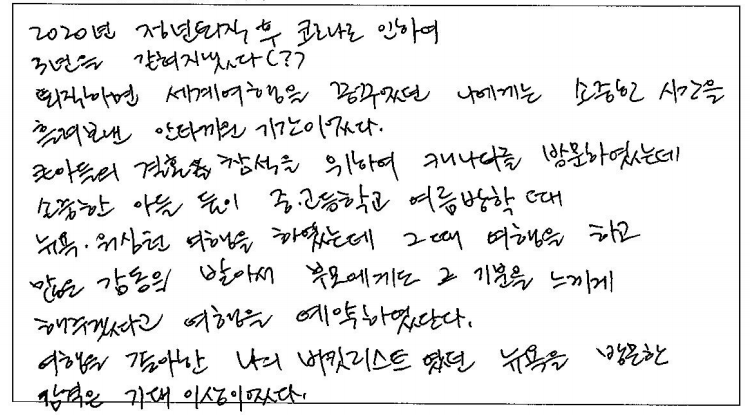 2020년 정년퇴직 후 코로나로 인하여
3년을 갇혀지냈다(??)
퇴직하면 세계여행을 꿈꾸었던 나에게는 소중한 시간을
흘려보낸 안타까운 기간이었다.
큰아들의 결혼식 참석을 위하여 캐나다를 방문하였는데
소중한 아들 둘이 중.고등학교 여름방학 때
뉴욕.워싱턴 여행을 하였는데 그때 여행을 하고
많은 감동을 받아서 부모에게도 그 기분을 느끼게
해주겠다고 여행을 예약하였단다.
여행을 좋아한 나의 버킷리스트 였던 뉴욕을 방문한
감격은 기대 이상이었다.